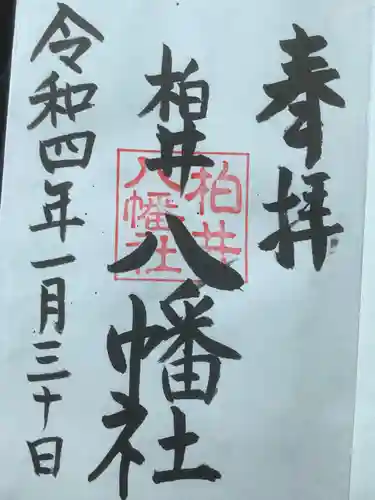 奉拝
柏井八幡社
柏井
八幡社
令和四年一月三十日